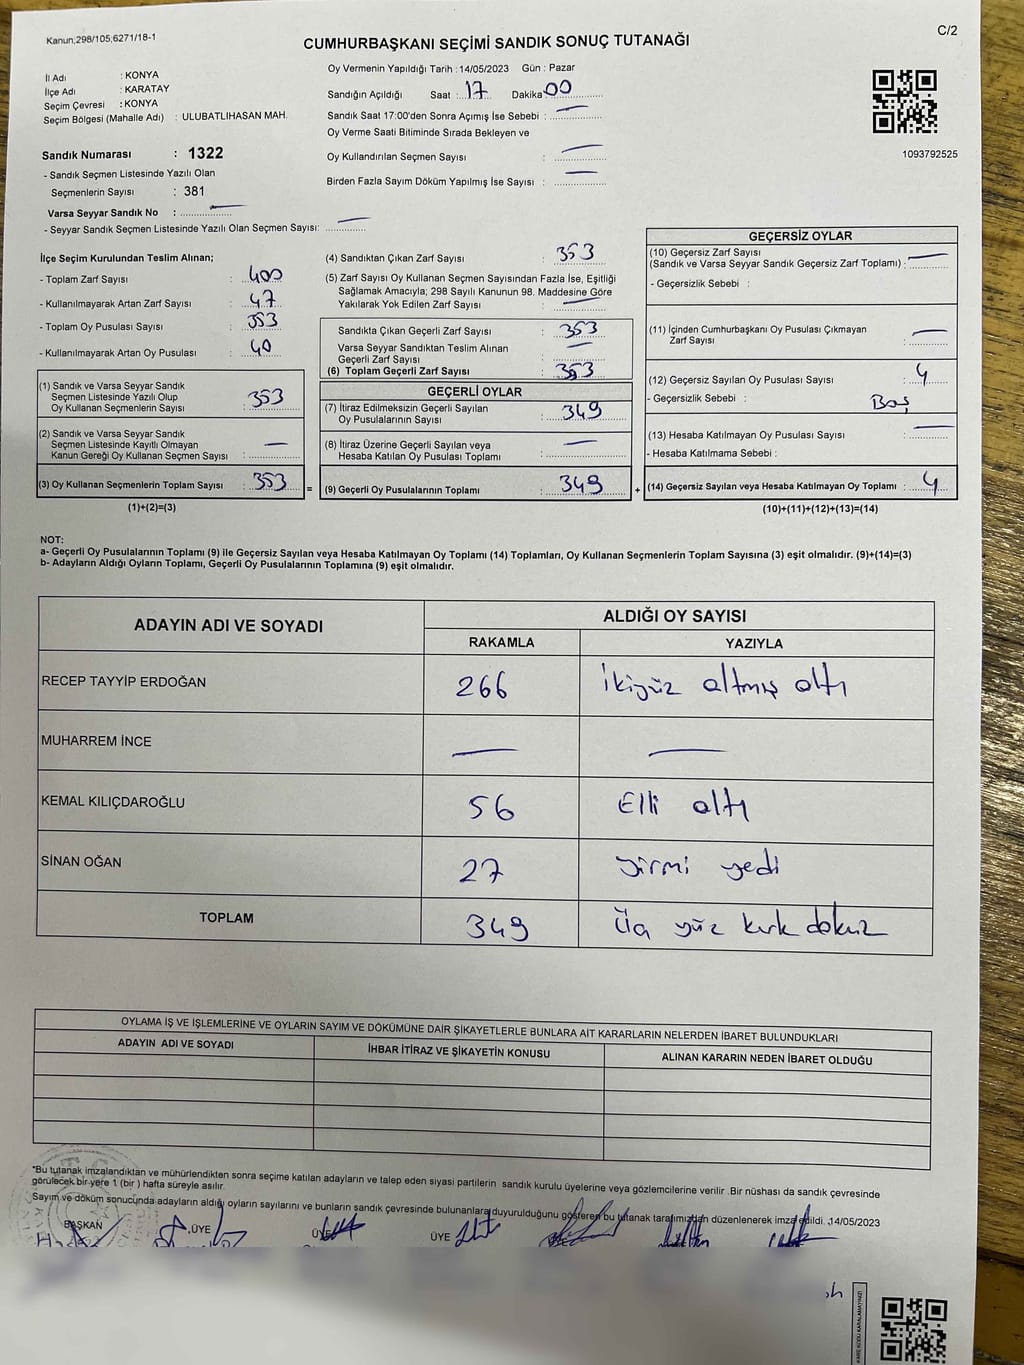 Kanun;298/105;6271/18-1
C/2
CUMHURBAŞKANI SEÇİMİ SANDIK SONUÇ TUTANAĞI
İl Adı : KONYA
İlçe Adı : KARATAY
Seçim Çevresi : KONYA
Seçim Bölgesi (Mahalle Adı) : ULUBATLIHASAN MAH.
Oy Vermenin Yapıldığı Tarih : 14/05/2023 Gün : Pazar
Sandığın Açıldığı Saat : 17 Dakika 00
Sandık Saat 17:00'den Sonra Açımış İse Sebebi : —
Oy Verme Saati Bitiminde Sırada Bekleyen ve
Oy Kullandırılan Seçmen Sayısı : —
Birden Fazla Sayım Döküm Yapılmış İse Sayısı : —
1093792525
Sandık Numarası : 1322
- Sandık Seçmen Listesinde Yazılı Olan
Seçmenlerin Sayısı : 381
Varsa Seyyar Sandık No : —
- Seyyar Sandık Seçmen Listesinde Yazılı Olan Seçmen Sayısı: —
İlçe Seçim Kurulundan Teslim Alınan;
- Toplam Zarf Sayısı : 400
- Kullanılmayarak Artan Zarf Sayısı : 47
- Toplam Oy Pusulası Sayısı : 353
- Kullanılmayarak Artan Oy Pusulası : 40
(1) Sandık ve Varsa Seyyar Sandık
Seçmen Listesinde Yazılı Olup
Oy Kullanan Seçmenlerin Sayısı : 353
(2) Sandık ve Varsa Seyyar Sandık
Seçmen Listesinde Kayıtlı Olmayan
Kanun Gereği Oy Kullanan Seçmen Sayısı : —
(3) Oy Kullanan Seçmenlerin Toplam Sayısı : 353 =
(1)+(2)=(3)
(4) Sandıktan Çıkan Zarf Sayısı : 353
(5) Zarf Sayısı Oy Kullanan Seçmen Sayısından Fazla İse, Eşitliği
Sağlamak Amacıyla; 298 Sayılı Kanunun 98. Maddesine Göre
Yakılarak Yok Edilen Zarf Sayısı : —
Sandıkta Çıkan Geçerli Zarf Sayısı : 353
Varsa Seyyar Sandıktan Teslim Alınan
Geçerli Zarf Sayısı : —
(6) Toplam Geçerli Zarf Sayısı : 353
GEÇERLİ OYLAR
(7) İtiraz Edilmeksizin Geçerli Sayılan
Oy Pusulalarının Sayısı : 349
(8) İtiraz Üzerine Geçerli Sayılan veya
Hesaba Katılan Oy Pusulası Toplamı : —
(9) Geçerli Oy Pusulalarının Toplamı : 349 +
GEÇERSİZ OYLAR
(10) Geçersiz Zarf Sayısı
(Sandık ve Varsa Seyyar Sandık Geçersiz Zarf Toplamı) : —
- Geçersizlik Sebebi :
(11) İçinden Cumhurbaşkanı Oy Pusulası Çıkmayan
Zarf Sayısı : —
(12) Geçersiz Sayılan Oy Pusulası Sayısı : 4
- Geçersizlik Sebebi : Boş
(13) Hesaba Katılmayan Oy Pusulası Sayısı : —
- Hesaba Katılmama Sebebi :
(14) Geçersiz Sayılan veya Hesaba Katılmayan Oy Toplamı : 4
(10)+(11)+(12)+(13)=(14)
NOT:
a- Geçerli Oy Pusulalarının Toplamı (9) ile Geçersiz Sayılan veya Hesaba Katılmayan Oy Toplamı (14) Toplamları, Oy Kullanan Seçmenlerin Toplam Sayısına (3) eşit olmalıdır. (9)+(14)=(3)
b- Adayların Aldığı Oyların Toplamı, Geçerli Oy Pusulalarının Toplamına (9) eşit olmalıdır.
ADAYIN ADI VE SOYADI
ALDIĞI OY SAYISI
RAKAMLA YAZIYLA
RECEP TAYYİP ERDOĞAN 266 İkiyüz altmış altı
MUHARREM İNCE — —
KEMAL KILIÇDAROĞLU 56 Elli altı
SİNAN OĞAN 27 yirmi yedi
TOPLAM 349 Üç yüz kırk dokuz
OYLAMA İŞ VE İŞLEMLERİNE VE OYLARIN SAYIM VE DÖKÜMÜNE DAİR ŞİKAYETLERLE BUNLARA AİT KARARLARIN NELERDEN İBARET BULUNDUKLARI
ADAYIN ADI VE SOYADI İHBAR İTİRAZ VE ŞİKAYETİN KONUSU ALINAN KARARIN NEDEN İBARET OLDUĞU
*Bu tutanak imzalandıktan ve mühürlendikten sonra seçime katılan adayların ve talep eden siyasi partilerin sandık kurulu üyelerine veya gözlemcilerine verilir .Bir nüshası da sandık çevresinde
görülecek bir yere 1 (bir ) hafta süreyle asılır.
Sayım ve döküm sonucunda adayların aldığı oyların sayılarını ve bunların sandık çevresinde bulunanlara duyurulduğunu gösteren bu tutanak tarafımızdan düzenlenerek imza edildi. .14/05/2023
BAŞKAN ÜYE ÜYE ÜYE
KARE KODU KARALAMAYINIZ!